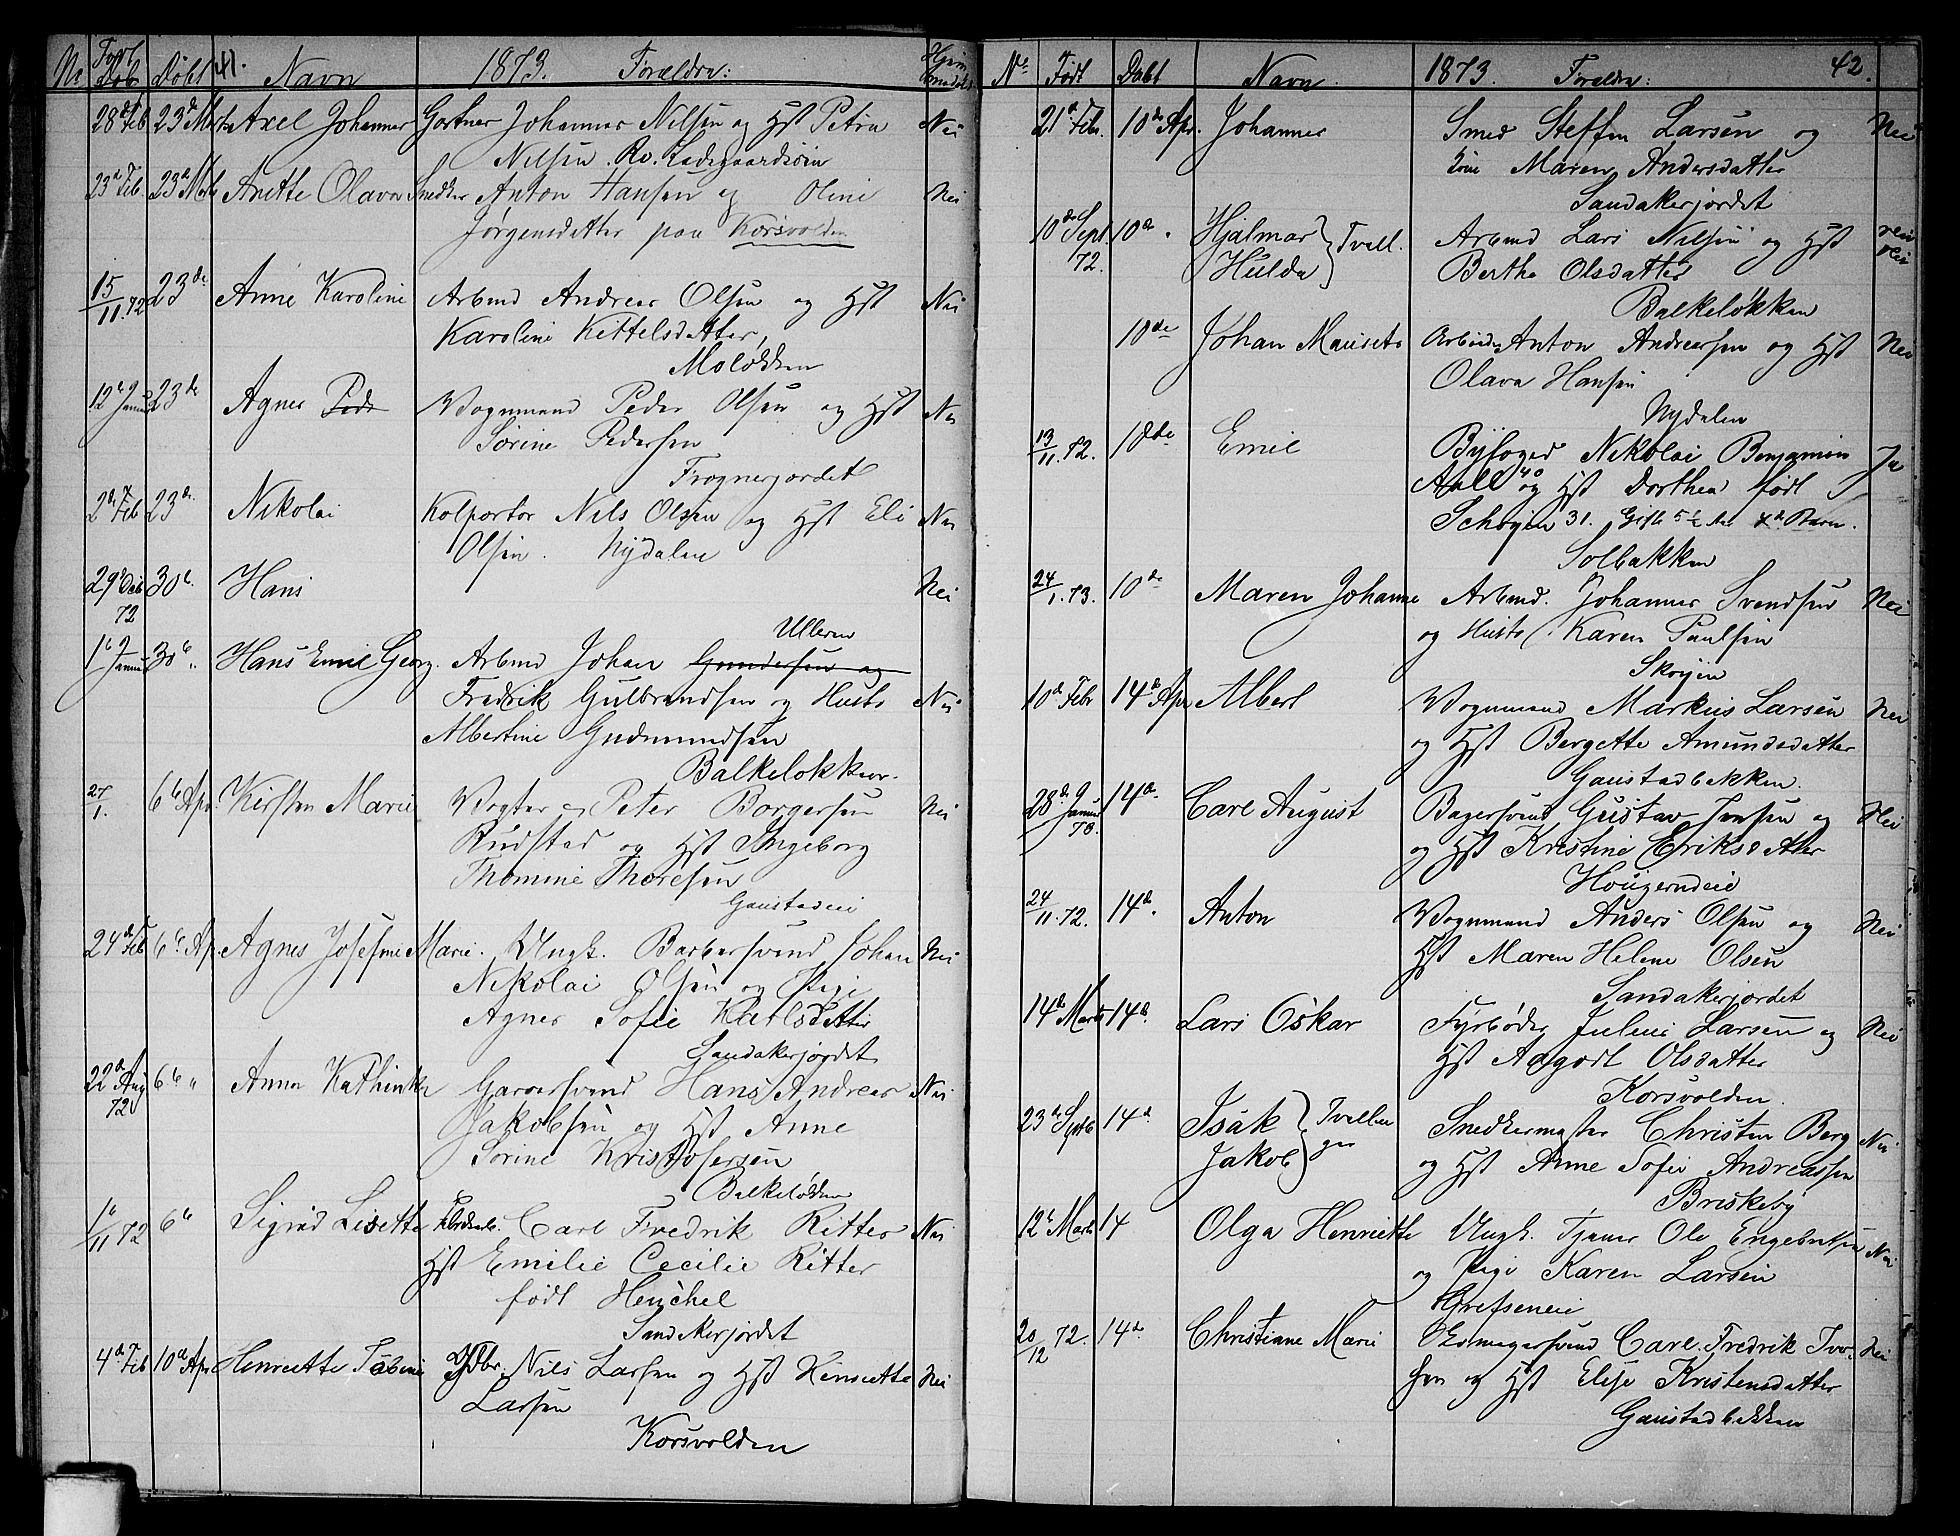 Nr Født Døbt 41. Navn 1873. Forældre: Hjemmedøbt
28de Feb 23de Marts Axel Johannes Gartner Johannes Nilsen og Hst Petra Nei
Nilsen. Rv. Ladegaardsøin
23de Feb. 23de Mrts Anette Olava Snedker Anton Hansen og Oline Nei
Jørgensdatter paa Korsvolden
15/11.72 23de Anne Karoline Arbmd Andreas Olsen og Hst Nei
Karoline Kittelsdatter,
Moløkken
12te Januar 23de Agnes Vognmand Peder Olsen og Hst Nei
Sørine Pedersen
Frognerjordet
2de Feb 23de Nikolai Kolportør Nils Olsen og Hst Eli Nei
Olsen. Nydalen
29de Deb 72 30te Hans Nei
Ulleren
1te Januar 30te Hans Emil Georg. Arbmd Johan Gundersen og
Fredrik Gulbrandsen og Hustr Nei
Albertine Gudmundsen
Balkeløkken.
27/1. 6te Apr. Kirsten Marie Vogter Peter Borgersen Nei
Rudstad og Hst Ingeborg
Thomine Thoresen
Gaustadeie
24de Feb 6te Ap. Agnes Josefine Marie. Ungk. Barbersvend Johan Nei
Nikolai Olsen og Pige
Agnes Sofie Karlsdatter
Sandakerjordet
22de Aug 72 6te " Anna Kathinka Garversvend Hans Andreas Nei
Jakobsen og Hst Anne
Sørine Kristofersen
Balkeløkken
1te/11 72 6te Sigrid Lisette Carl Fredrik Ritter Nei
Hst Emilie Cecilie Ritter
født Henschel
Sandakerjordet
4de Feb 10de Apr Henriette Nils Larsen og Hst Henriette Nei
Larsen
Korsvolden
No Født Døbt Navn. 1873. Forældre: 42.
21de Febr. 10de Apr. Johannes Smed Steffen Larsen og Nei
Maren Andersdatter
Sandakerjordet
10de Sept 72. 10de " Hjalmar } Tvill. Arbmd Lars Nilsen og Hst Nei
Hulda Berthe Olsdatter Nei
Balkeløkken
10de Johan Mauritz Arbeider Anton Andreassen og Hst Nei
Olava Hansen
Nydalen
13/11.72. 10de Emil Byfoged Nikolai Benjamin Ja
Aall 40 og Hst Dorthea født
Schøyen 31. Gifte 5½ Aar 4de Barn.
Solbakken
24/1.73. 10de Maren Johanne Arbmd. Johannes Svendsen Nei
og Hustr Karen Paulsen
Skøyen
10de Febr 14de Apr Albert Vognmand Markus Larsen Nei
og Hst Bergette Amundsdatter
Gaustadbekken.
28de Januar 73. 14de Carl August Bagersvend Gustav Jonsen og Nei
og Hst Kristine Eriksdatter
Hougerudeie
24/11.72. 14de Anton Vognmand Anders Olsen og Nei
Hst Maren Helene Olsen
Sandakerjordet
14de Marts 14de Lars Oskar Fyrbøder Julius Larsen og Nei
Hst Aagodt Olsdatter
Korsvolden.
23de Septb 14de Isak } Tvillinger Snedkermester Christen Berg Nei
Jakob og Hst Anne Sofie Andreassen
Briskeby
12te Marts 14 Olga Henriette Ungk. Tjener Ole Engebretsen Nei
og Pige Karen Larsen
Grefseneie
20/12 72. 14de Christiane Marie Carl Fredrik Iver- Nei
sen og Hst Elise Kristensdatter
Gaustadbekken